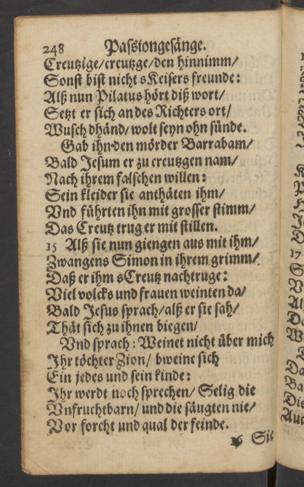 248 Passiongesänge.
Creutzige/creutzge/den hinnimm/
Sonst bist nicht sKeisers freunde:
Alß nun Pilatus hört diß wort/
Setzt er sich an des Richters ort/
Wusch dhänd/wolt seyn ohn sünde.
Gab ihn-den mörder Barrabam/
Bald Jesum er zu creutzgen nam/
Nach ihrem falschen willen:
Sein kleider sie anthäten ihm/
Vnd führten ihn mit grosser stimm/
Das Creutz trug er mit stillen.
15 Alß sie nun giengen aus mit ihm/
Zwangens Simon in ihrem grimm/
Daß er ihm sCreutz nachtruge:
Viel volcks und frauen weinten da/
Bald Jesus sprach/alß er sie sah/
Thät sich zu ihnen biegen/
Vnd sprach: Weinet nicht über mich
Ihr töchter Zion/ bweine sich
Ein jedes und sein kinde:
Ihr werdt noch sprechen/ Selig die
Vnfruchtbarn/ und die säugten nie/
Vor forcht und qual der feinde.
Sie